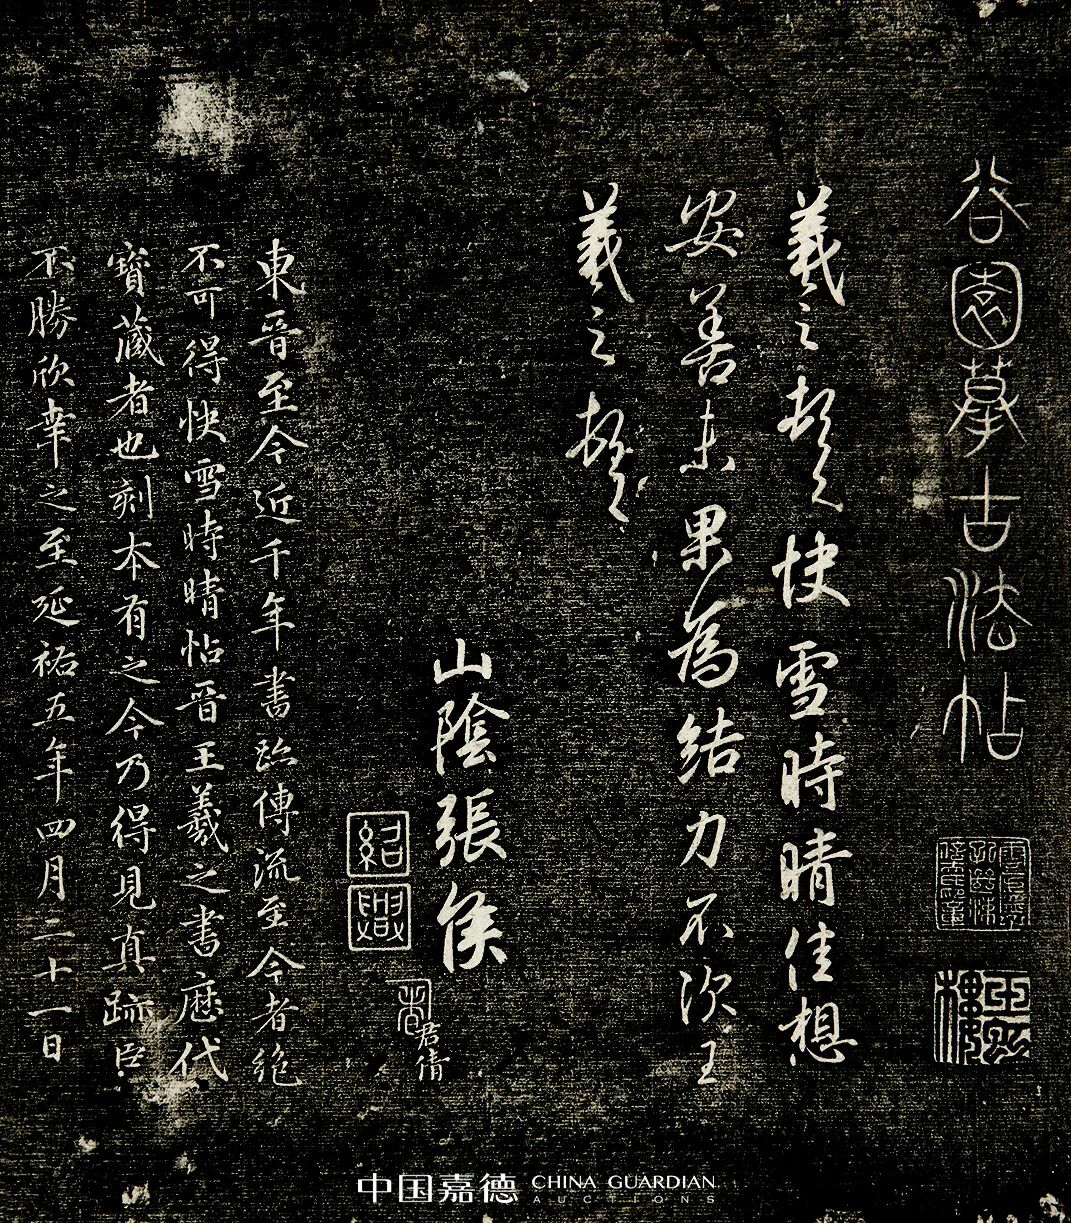 谷園摹古法帖
羲之頓首快雪時晴佳想
安善未果為結力不次王
羲之頓首
山陰張侯
紹興
君倩
東晉至今近千年書跡傳流至今者絶
不可得快雪時晴帖晉王羲之書歷代
寶藏者也刻本有之今乃得見真跡臣
不勝欣幸之至延祐五年四月二十一日
中国嘉德 CHINA GUARDIAN
AUCTIONS